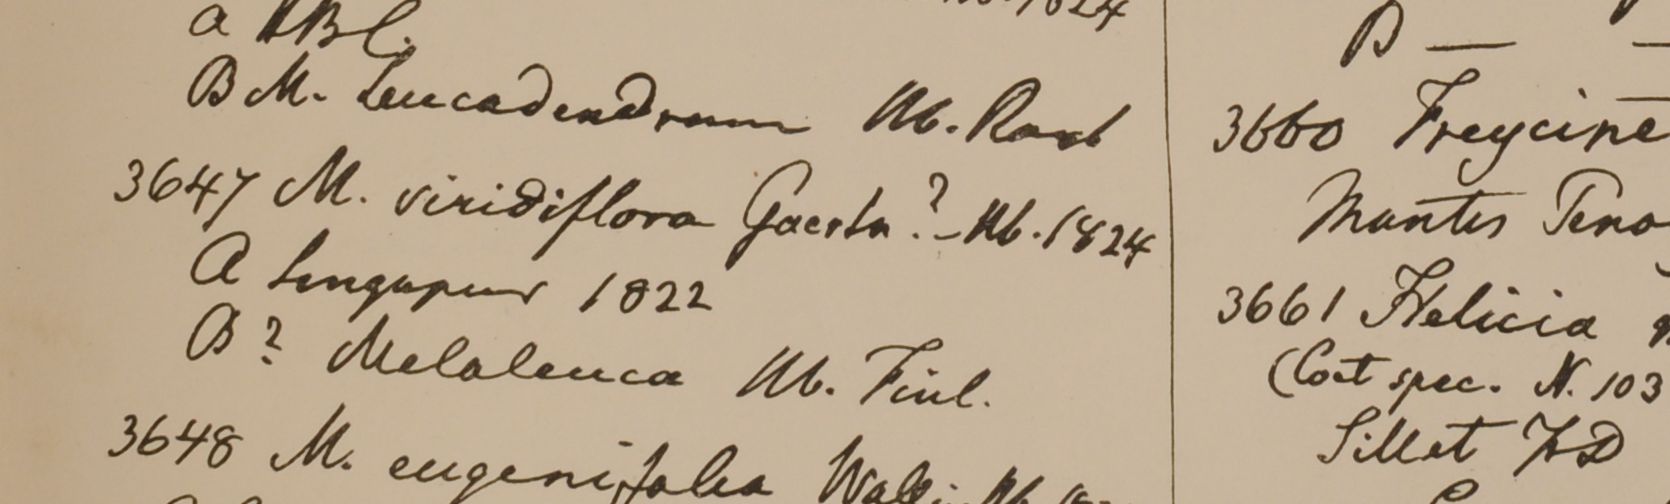 1824
a HBC.
B M. Leucadendrum Hb. Roxb
3647 M. viridiflora Gaertn? - Hb. 1824
A Singapur 1822
B? Melaleuca Hb. Finl.
3648 M. eugenifolia Wall. Hb.
B —
3660 Freycine
Montes Peno
3661 Helicia
(Coct spec. N. 103
Sillet FD